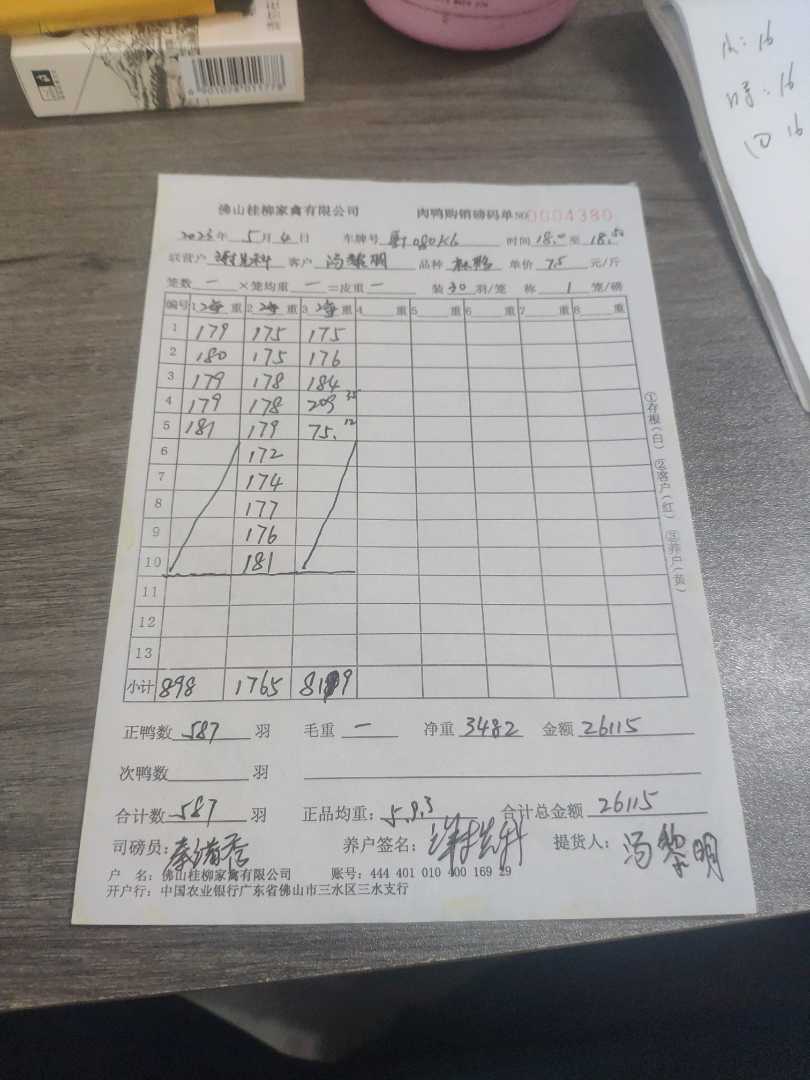 6 901028 011778
内: 16
时: 16
回 16
佛山桂柳家禽有限公司 肉鸭购销磅码单 NO 0004380
2023年 5月 4日 车牌号 080K6 时间 18.00 至 18.50
联营户 客户 冯黎明 品种 单价 7.5 元/斤
笼数 一 ×笼均重 一 =皮重 一 装 30 羽/笼 称 1 笼/磅
编号 1 净 重 2 净 重 3 净 重 4 重 5 重 6 重 7 重 8 重
1 179 175 175
2 180 175 176
3 179 178 184
4 179 178 209 35
5 181 179 75. 12
6 172
7 174
8 177
9 176
10 181
11
12
13
小计 898 1765 819
①存根(白) ②客户(红) ③养户(黄)
正鸭数 587 羽 毛重 一 净重 3482 金额 26115
次鸭数 羽
合计数 587 羽 正品均重: 5.93 合计总金额 26115
司磅员: 养户签名: 提货人: 冯黎明
户 名: 佛山桂柳家禽有限公司 账号: 444 401 010 400 169 29
开户行: 中国农业银行广东省佛山市三水区三水支行